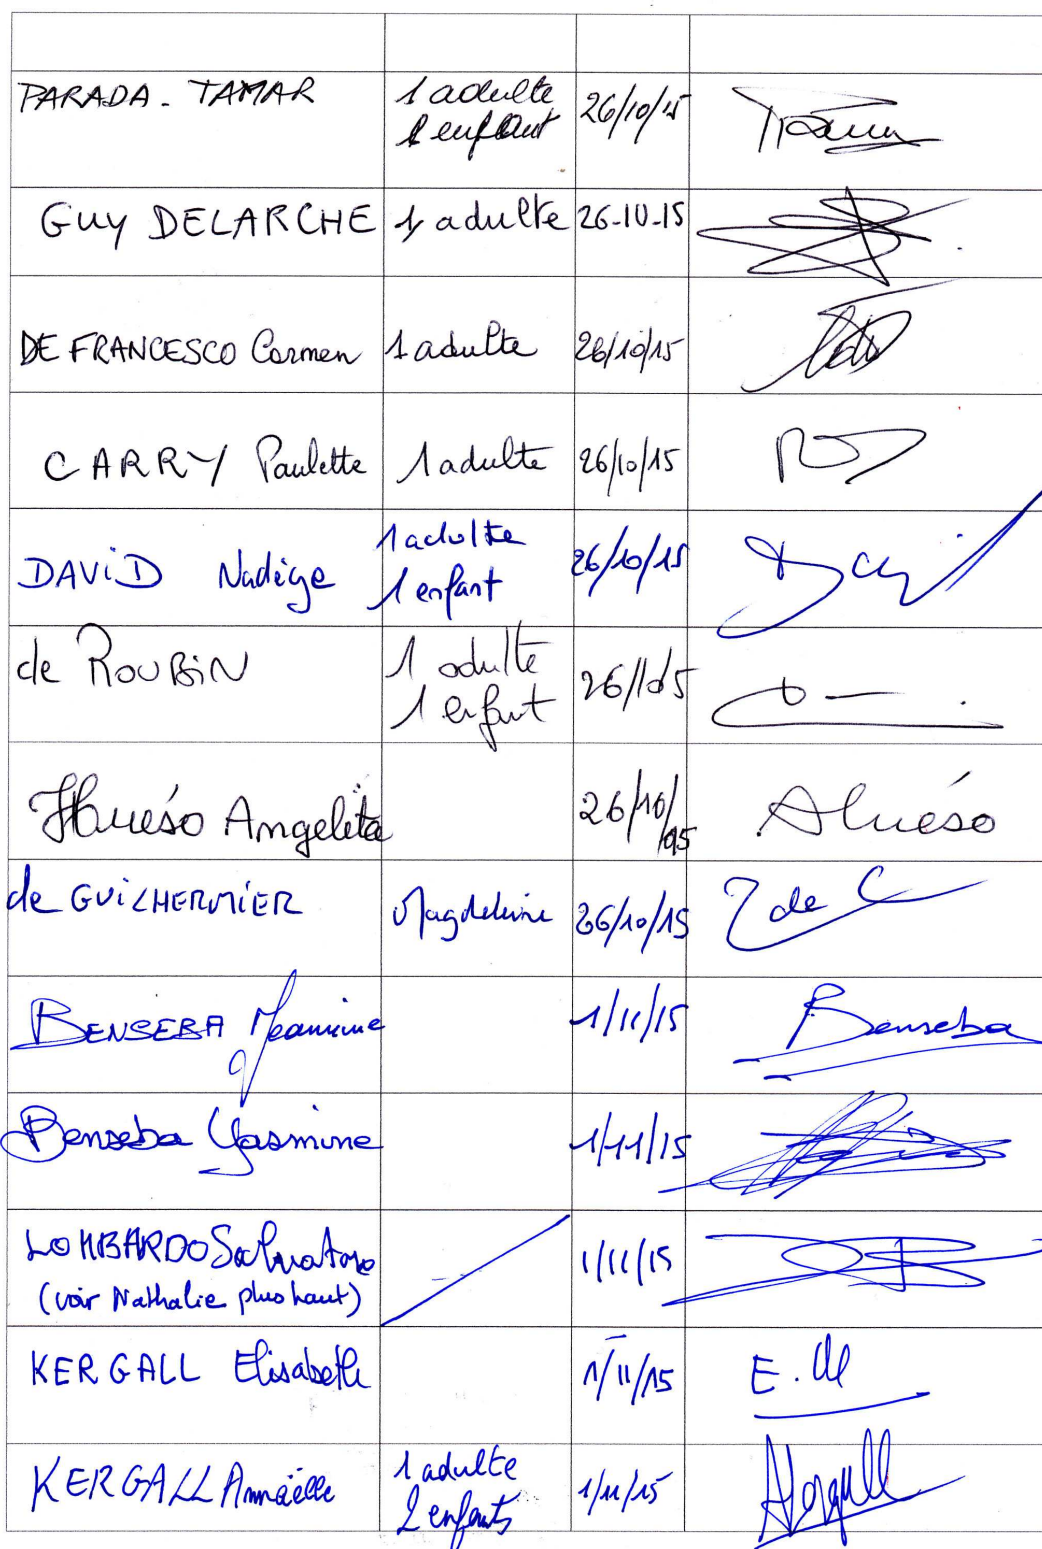 PARADA - TAMAR 1 adulte 26/10/15
1 enfant
GUY DELARCHE 1 adulte 26-10-15
DE FRANCESCO Carmen 1 adulte 26/10/15
CARRY Paulette 1 adulte 26/10/15
DAViD Nadège 1 adulte 26/10/15
1 enfant
de ROUBiN 1 adulte 26/10/15
1 enfant
Huéso Angelita 26/10/15 AHuéso
de GUiLHERMiER Magdeleine 26/10/15
BENSEBA Jeannine 1/11/15 Benseba
Benseba Yasmine 1/11/15
LOMBARDO Salvatore 1/11/15
(voir Nathalie plus haut)
KERGALL Elisabeth 1/11/15
KERGALL Annaëlle 1 adulte 1/11/15
2 enfants